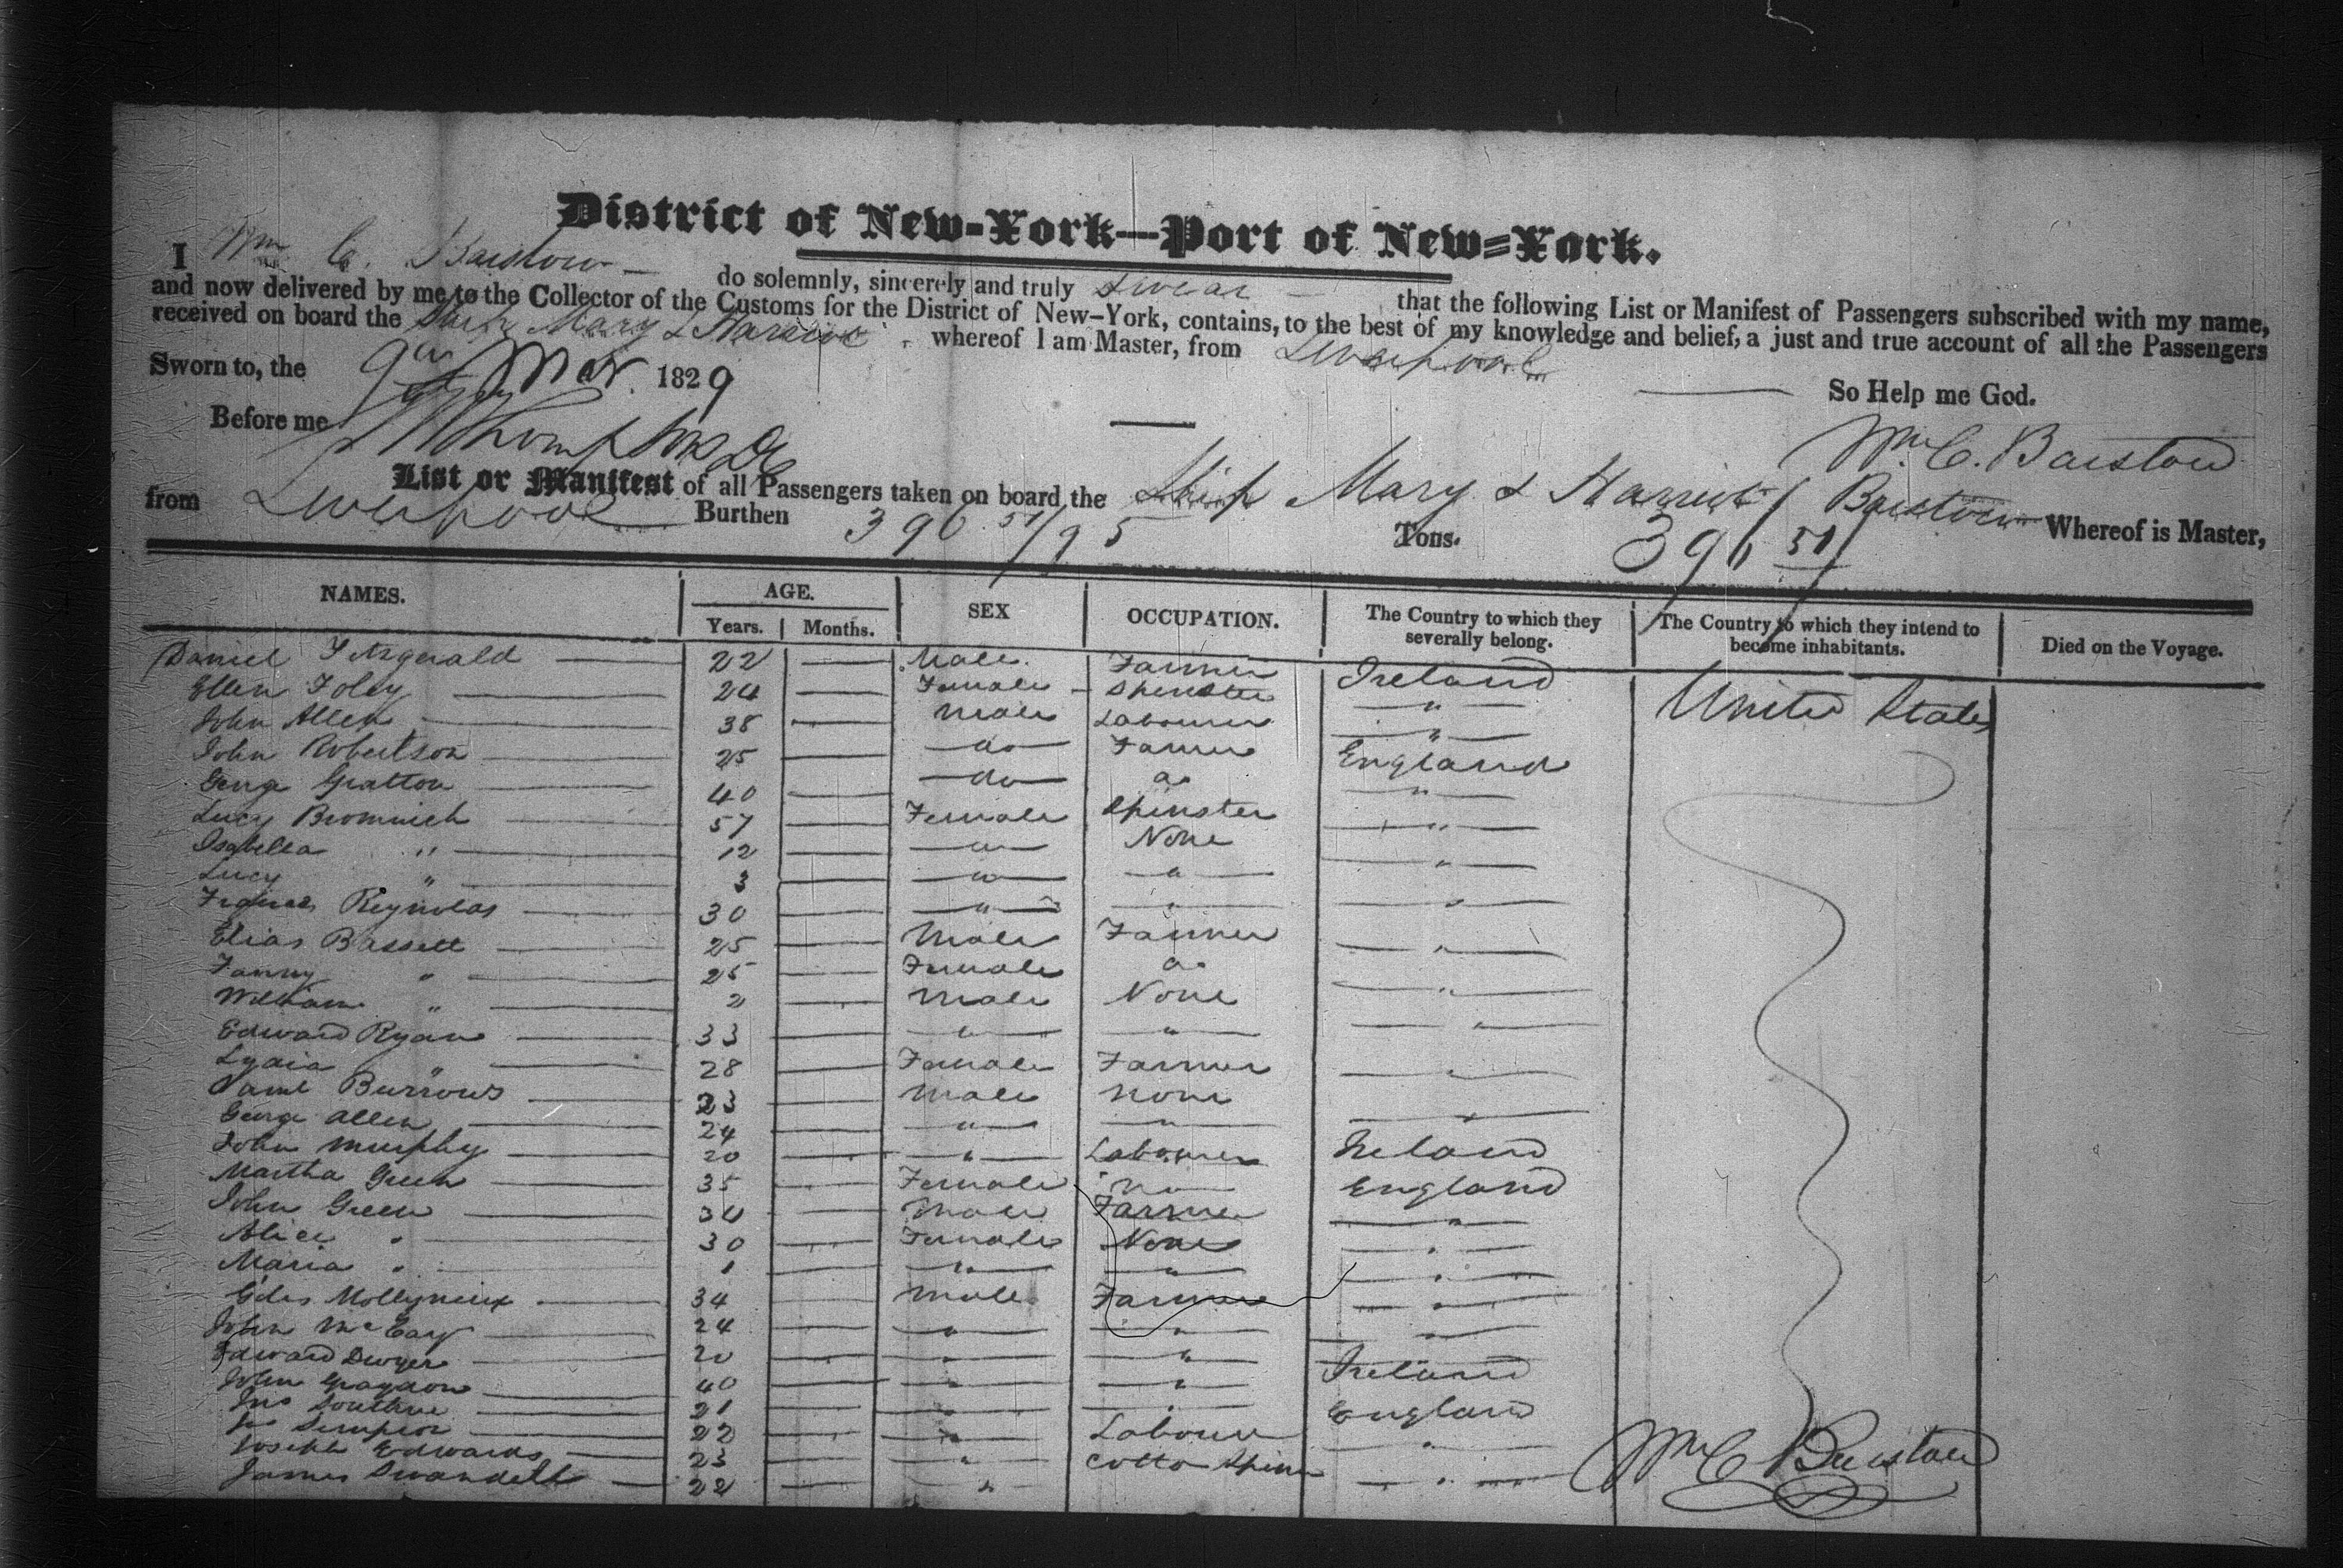 District of New-York—Port of New-York.
I Wm C. Barstow do solemnly, sincerely and truly swear — that the following List or Manifest of Passengers subscribed with my name,
and now delivered by me to the Collector of the Customs for the District of New-York, contains, to the best of my knowledge and belief, a just and true account of all the Passengers
received on board the Ship Mary & Harriet whereof I am Master, from Liverpool
Sworn to, the 9th Mar 1829 So Help me God.
Before me Thompson Wm C. Barstow
List or Manifest of all Passengers taken on board the Ship Mary & Harriet Barstow Whereof is Master,
from Liverpool Burthen 396 51/95 Tons. 396 51/
NAMES. AGE. SEX OCCUPATION. The Country to which they severally belong. The Country to which they intend to become inhabitants. Died on the Voyage.
Years. Months.
Daniel Fitzgerald 22 Male Farmer Ireland United States
Ellen Foley 24 Female Spinster "
John Allen 38 Male Labourer "
John Robertson 25 do Farmer England
George Gratton 40 do do "
Lucy Bromwich 57 Female Spinster "
Isabella " 12 " None "
Lucy " 3 " " "
Frances Reynolds 30 " " "
Elias Bassett 25 Male Farmer "
Fanny " 25 Female do "
William " 2 Male None "
Edward Ryan 33 " " "
Lydia " 28 Female Farmer "
Saml Burrows 23 Male None "
George Allen 24 " "
John Murphy 20 " Labourer Ireland
Martha Green 35 Female no England
John Green 34 Male Farmer "
Alice " 30 Female None "
Maria " 1 " " "
Giles Mollyneux 34 Male Farmer "
John Mc 24 " " "
Edward Dwyer 20 " " Ireland
John Graydon 40 " "
Jno 21 " " England
Jno 22 " Labourer "
Joseph Edwards 23 " Cotton Spinner "
James Swandell 22 "
Wm C Barstow